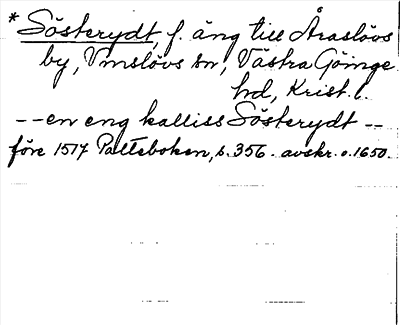 * Sösterydt, f. äng till Åraslövs
by, Vinslövs sn, Västra Göinge
hd, Krist. l.
-- en eng kalliss Sösterydt --
före 1517 Palteboken, s. 356. avskr. o. 1650.